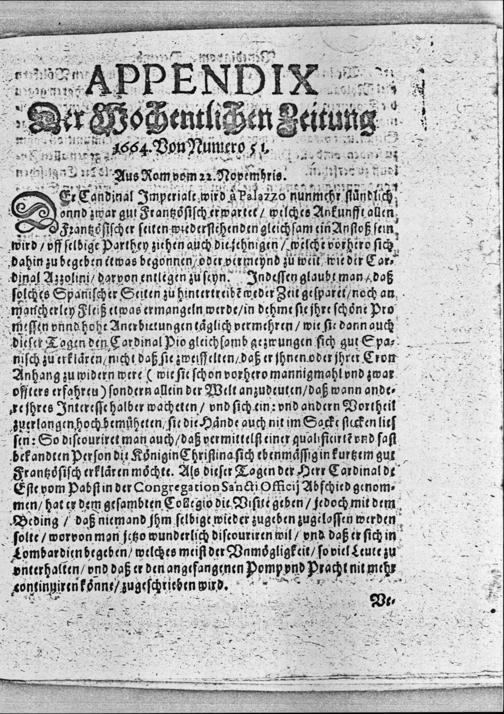 APPENDIX
Der Wochentlichen Zeitung
1664. Von Numero 51.
Aus Rom vom 22. Novembris.
DEr Cardinal Imperiale wird à Palazzo nunmehr stündlich
vnnd zwar gut Frantzösisch erwartet / welches Ankunfft allen
Frantzösischer seiten wiederstehenden gleichsam ein Anstoß sein
wird / vff selbige Parthey ziehen auch diejehnigen / welche vorhero sich
dahin zu begeben etwas begonnen / oder vermeynd zu weit, wie der Car-
dinal Azzolini / darvon entlegen zu seyn. Indessen glaubt man / daß
solches Spanischer Seiten zu hintertreibē weder Zeit gesparet / noch an
mancherley Fleiß etwas ermangeln werde / in dehme sie jhre schöne Pro
messen vnnd hohe Anerbietungen täglich vermehren / wie sie dann auch
dieser Tagen den Cardinal Pio gleichsamb gezwungen sich gut Spa-
nisch zu erklären / nicht daß sie zweiffelten / daß er jhnen oder jhrer Cron
Anhang zu widern were ( wie sie schon vorhero mannigmahl vnd zwar
offters erfahren ) sondern allein der Welt anzudeuten / daß wann ande-
re jhres Interesse halber wacheten / vnd sich ein: vnd andern Vortheil
zuerlangen hoch bemüheten / sie die Hände auch nit im Sacke stecken lies
sen: So discouriret man auch / daß vermittelst einer qualificirtē vnd fast
bekandten Person die Königin Christina sich ebenmässig in kurtzem gut
Frantzösisch erklären möchte. Als dieser Tagen der Herr Cardinal de
Este vom Pabst in der Congregation Sancti Officij Abschied genom-
men / hat er dem gesambten Collegio die Visite geben / jedoch mit dem
Beding / daß niemand jhm selbige wieder zugeben zugelassen werden
solte / worvon man jetzo wunderlich discouriren wil / vnd daß er sich in
Lombardien begeben / welches meist der Vnmögligkeit / so viel Leute zu
vnterhalten / vnd daß er den angefangenen Pomp vnd Pracht nit mehr
continuiren könne / zugeschrieben wird.
Ve-